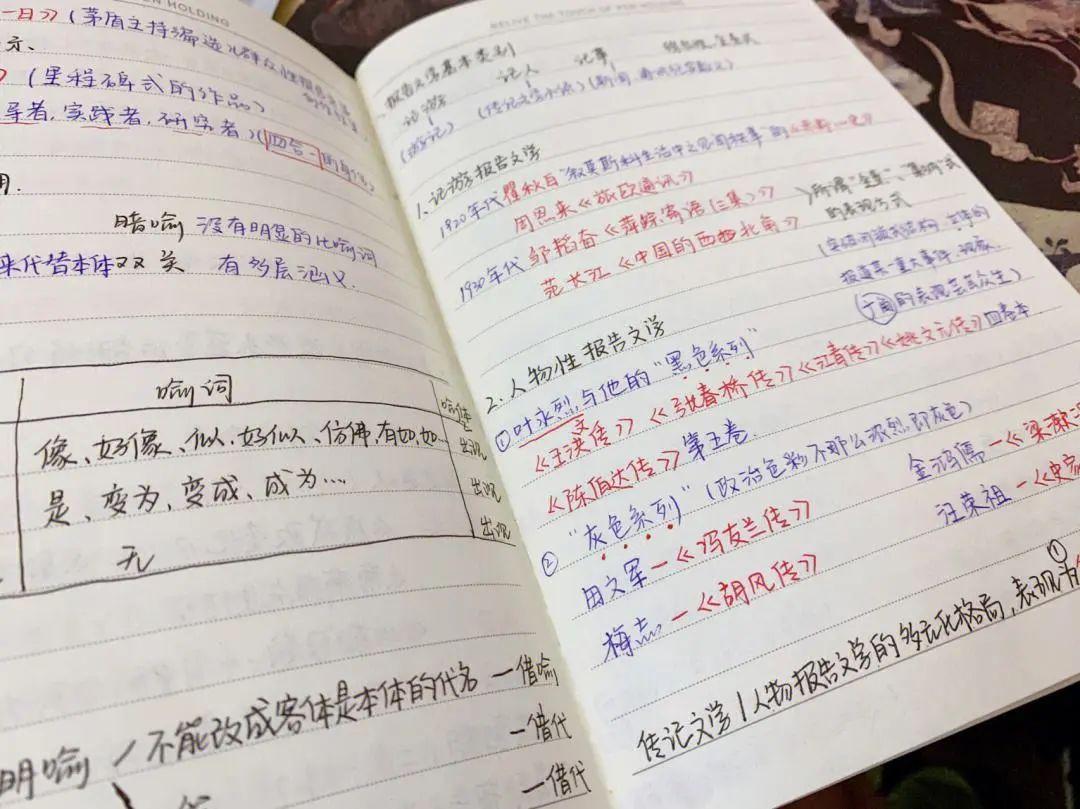 EN HOLDING
一日》(茅盾主持编选
示、
》(里程碑式的作品)
导者,实践者,研究者)(四合一的身份)
用.
暗喻 没有明显的比喻词
来代替本体 双关 有多层涵义.
喻词 喻体
像、好像、似、好似、仿佛、有如、如… 出现
是、变为、变成、成为… 出现
无 出现
不能改成客体是本体的代名 —借喻
明喻 —借代
—借代
RELIVE THE TOUCH OF PEN HOLDING
报告文学基本类别
记游 记人 记事
(游记) (传记文学小说) (新闻
1.记游报告文学
1920年代 瞿秋白 "叙莫斯科生活中之见闻轶事"的
周恩来《旅欧通讯》
1930年代 邹韬奋《萍踪寄语(三集)》 所谓"全景"、"集纳"式
范长江《中国的西北角》 的表现方式
报道某一重大事件、现象
的表现芸芸众生)
2.人物性报告文学
①叶永烈与他的"黑色系列"
《王洪文传》《张春桥传》《江青传》《姚文元传》四卷本
《陈伯达传》第五卷
②"灰色系列"(政治色彩不那么浓烈,即灰色)
田文军—《冯友兰传》 金鸿儒—《梁漱
梅志—《胡风传》 汪荣祖—《史家
传记文学/人物报告文学的多元化格局,表现为①